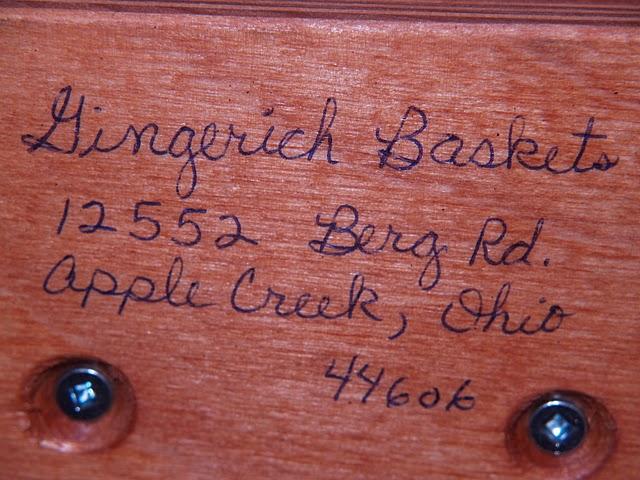 Gingerich Baskets
12552 Berg Rd.
Apple Creek, Ohio
44606